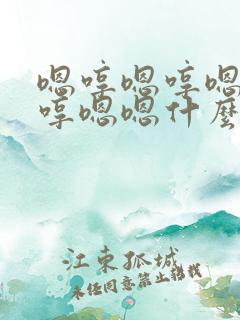 嗯哼嗯哼嗯
哼嗯嗯什麼
江東孤城
未任同意禁止轉載